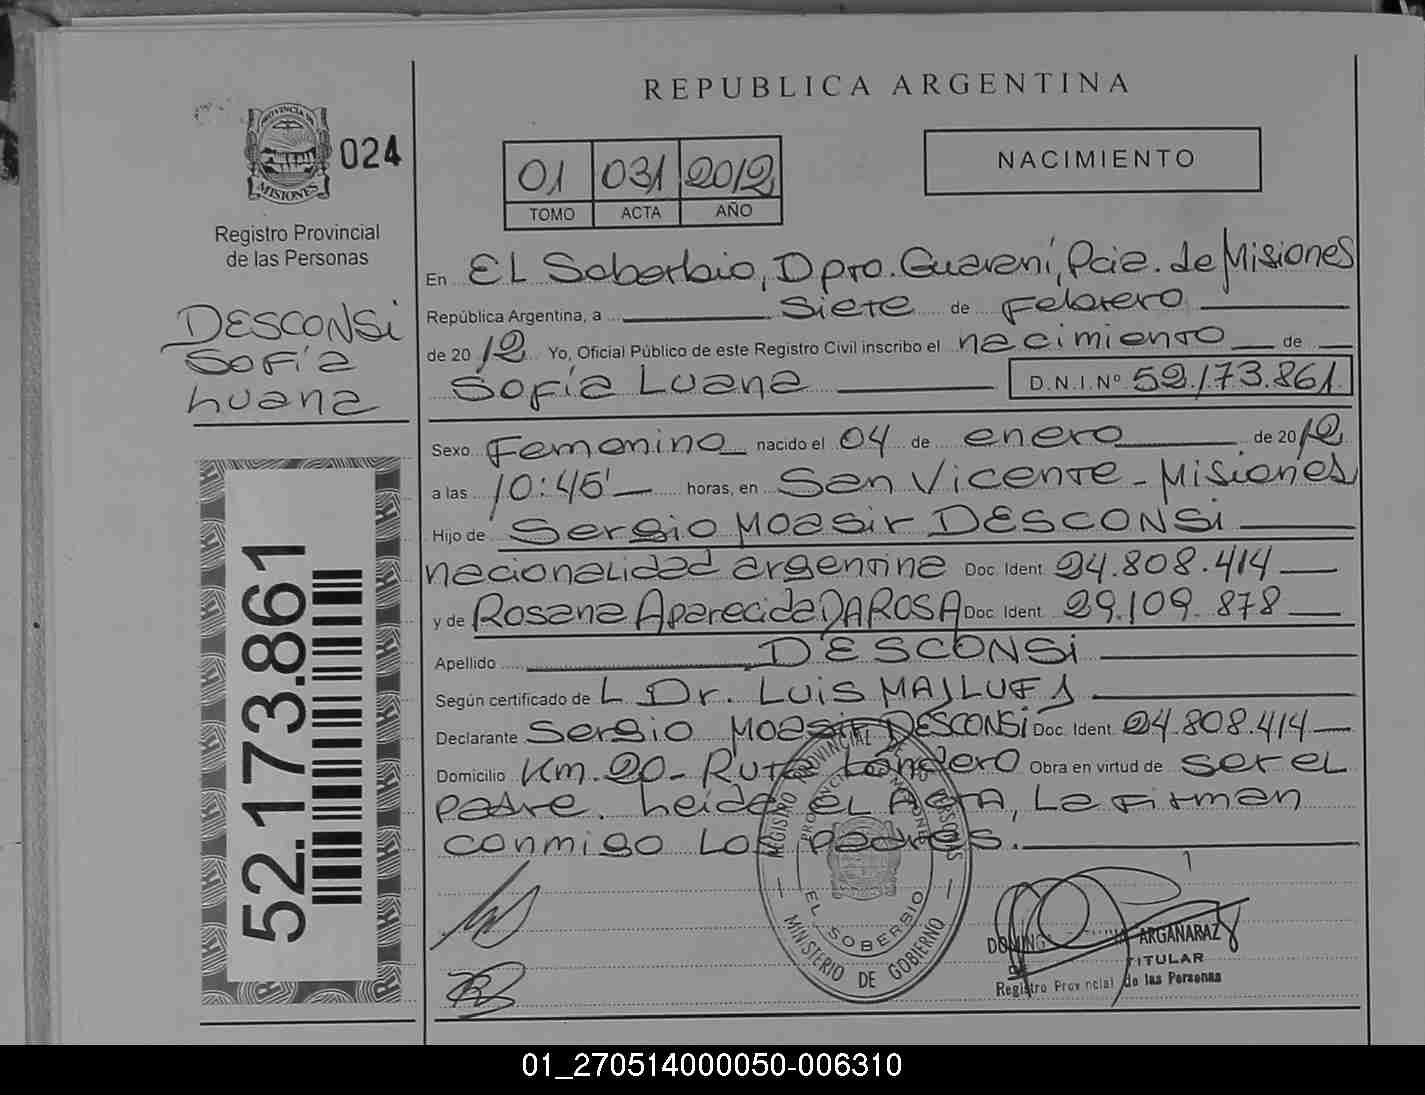 REPUBLICA ARGENTINA
PROVINCIA DE
MISIONES
024
Registro Provincial
de las Personas
01 031 2012
TOMO ACTA AÑO
NACIMIENTO
DESCONSi
SOFía
Luana
52.173.861
En EL Soberbio, Dpto. Guaraní, Pcia. de Misiones
República Argentina, a siete de Febrero
de 2012 Yo, Oficial Público de este Registro Civil inscribo el nacimiento de
Sofía Luana D.N.I.Nº 52.173.861
Sexo Femenino nacido el 04 de enero de 2012
a las 10:45' horas, en San Vicente - Misiones
Hijo de Sergio Moasir DESCONSi
nacionalidad argentina Doc. Ident. 24.808.414
y de Rosana Aparecida DA ROSA Doc. Ident. 29.109.878
Apellido DESCONSi
Según certificado de L Dr. Luis MAJLUF J
Declarante Sergio Moasir DESCONSi Doc. Ident. 24.808.414
Domicilio Km. 20 - Ruta Londero Obra en virtud de ser el
padre. Leida el Acta, La firman
conmigo Los padres.
REGISTRO PROVINCIAL DE LAS PERSONAS
PROVINCIA DE MISIONES
EL SOBERBIO
MINISTERIO DE GOBIERNO
ARGAÑARAZ
TITULAR
Registro Provincial de las Personas
01_270514000050-006310